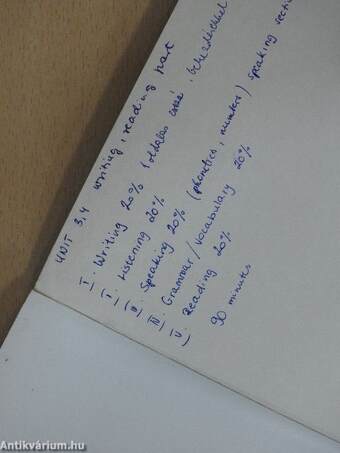 UNIT 3,4 writing, reading part
I. Writing 20% 1 oldalas esszé, bekezdésekkel
I) Listening 20%
III) Speaking 20% (phonetics, numbers) speaking section
IV) Grammar/vocabulary 20%
V) Reading 20%
90 minutes
Antikvárium.hu